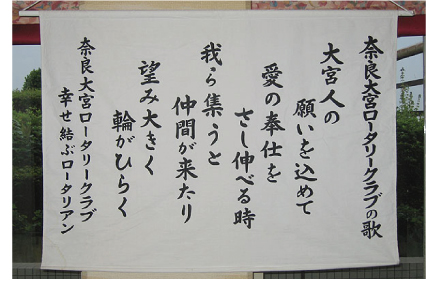 奈良大宮ロータリークラブの歌
大宮人の
願いを込めて
愛の奉仕を
さし伸べる時
我ら集うと
仲間が来たり
望み大きく
輪がひらく
奈良大宮ロータリークラブ
幸せ結ぶロータリアン